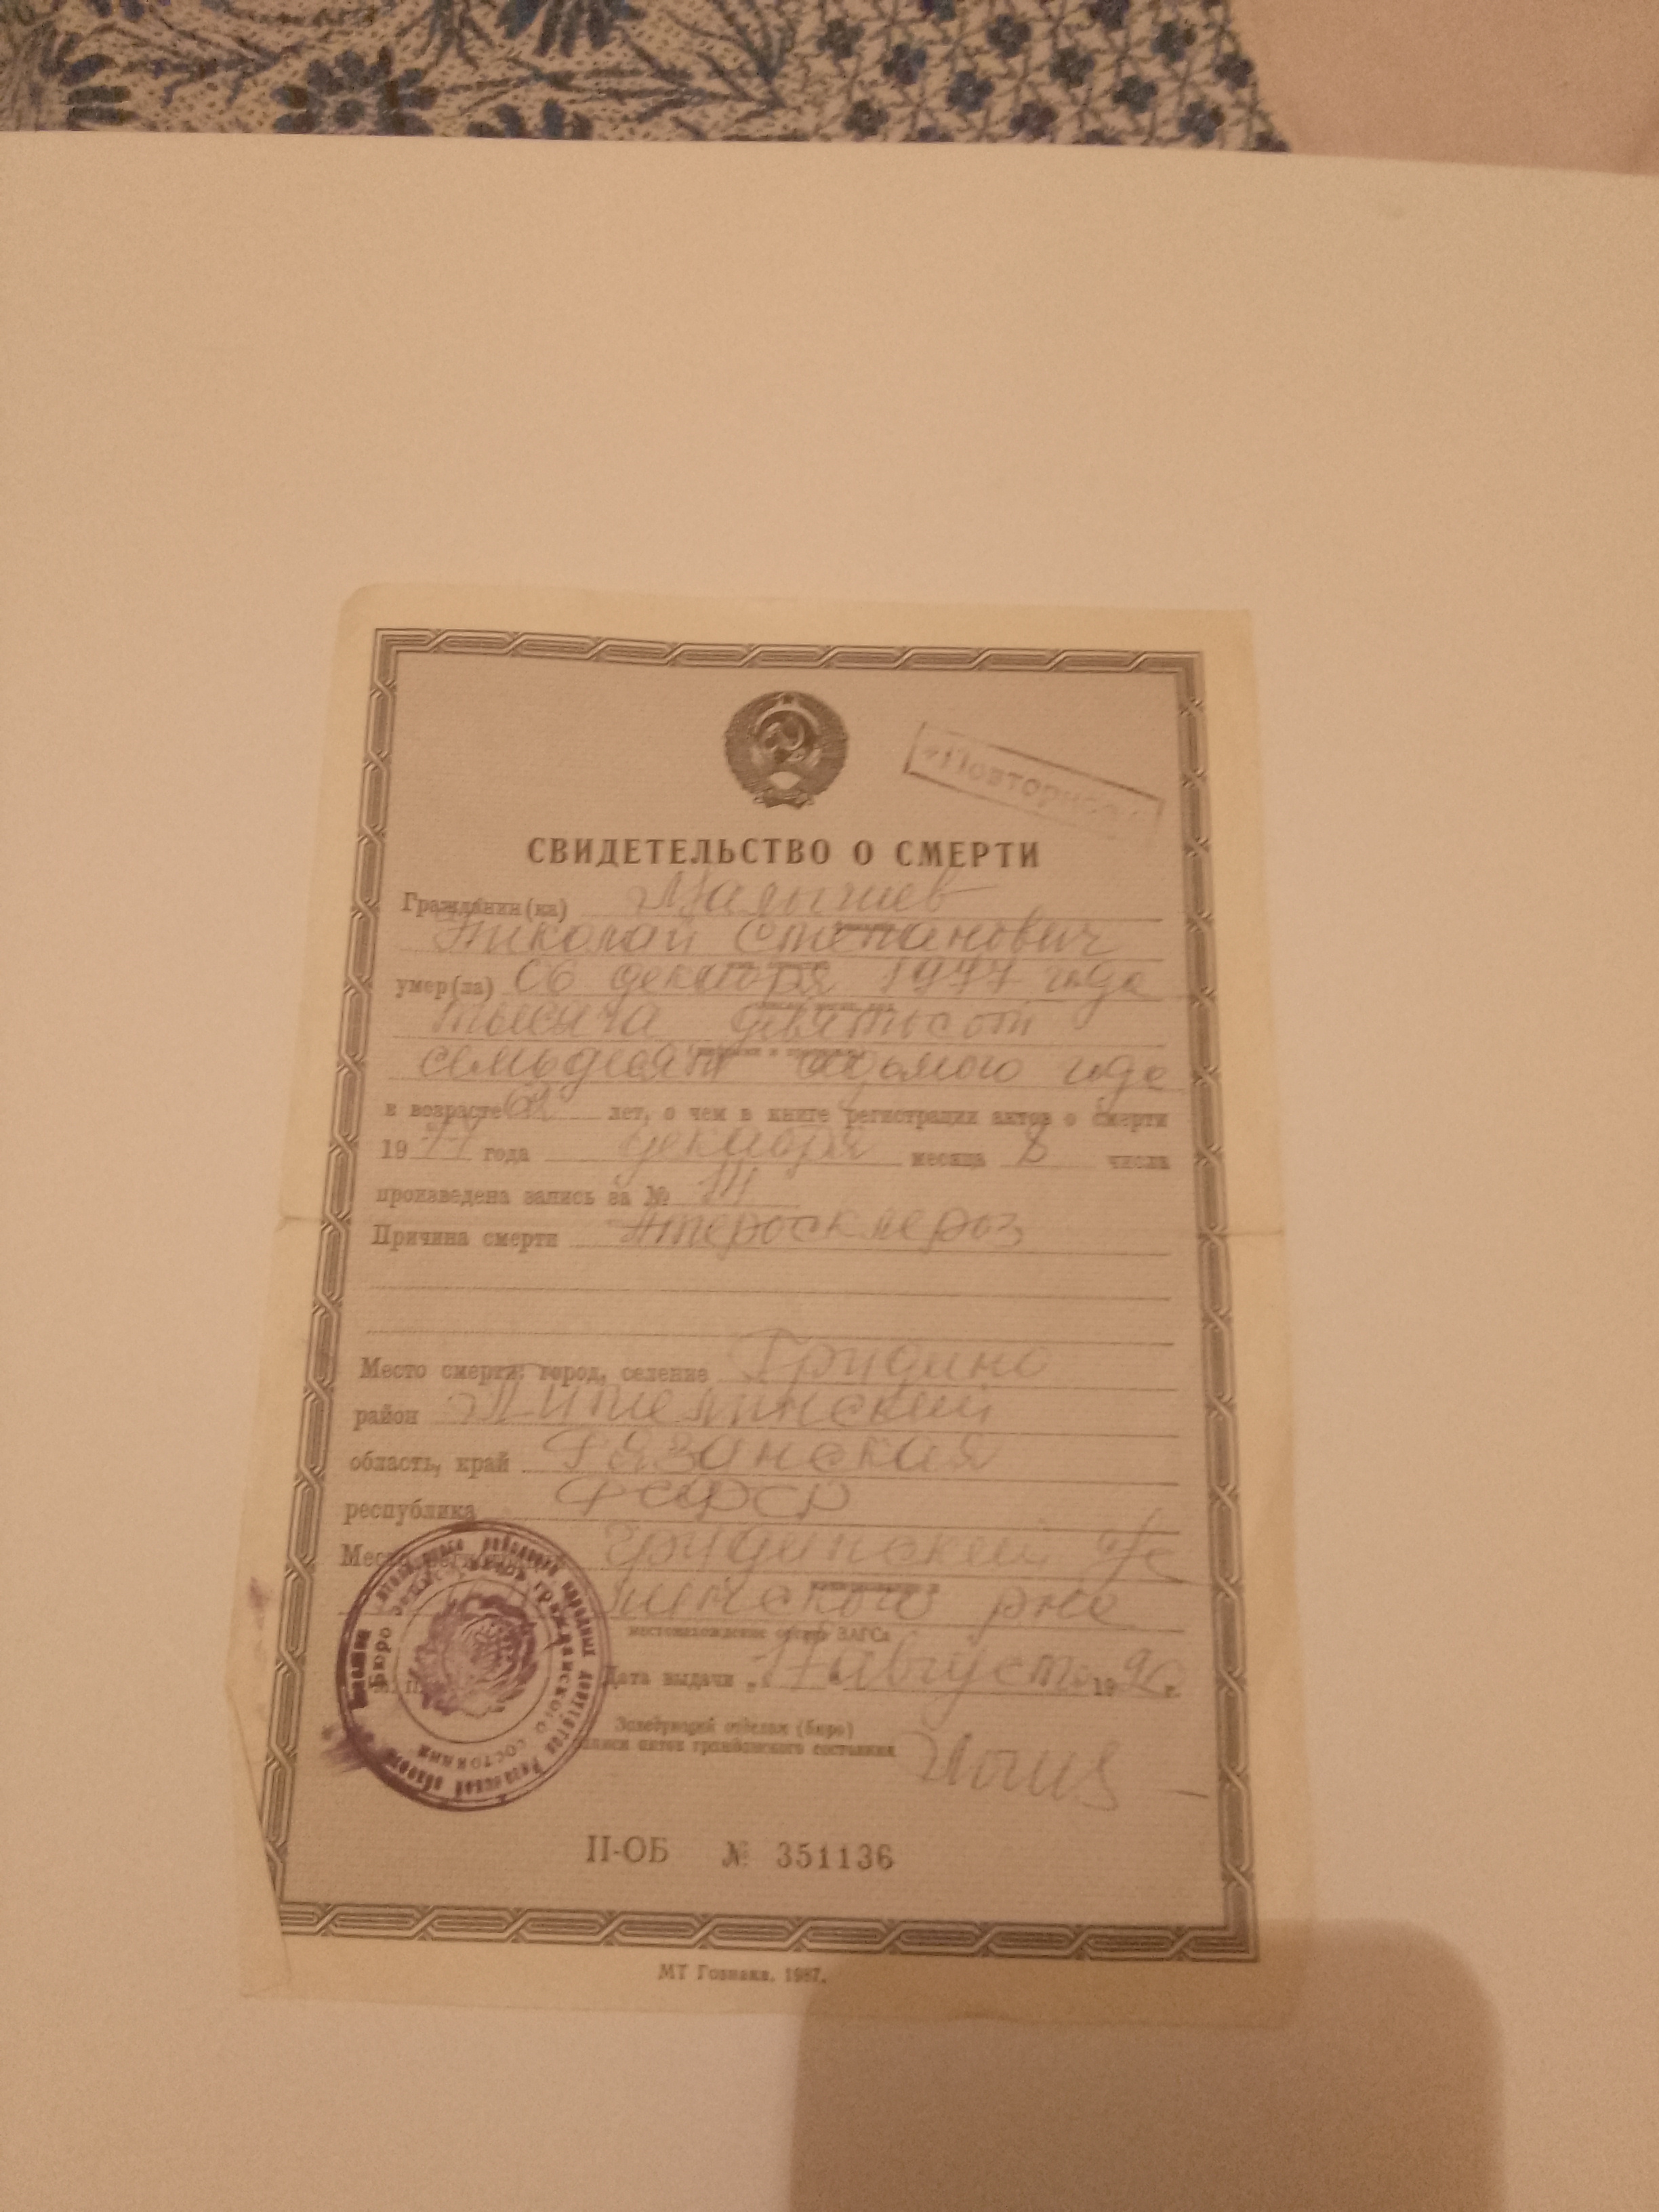 «Повторное»
СВИДЕТЕЛЬСТВО О СМЕРТИ
Гражданин(ка) Малышев
Николай Степанович
умер(ла) 06 декабря 1977 года
тысяча девятьсот
семьдесят седьмого года
в возрасте лет, о чем в книге регистрации актов о смерти
1977 года декабря месяца 8 числа
произведена запись за №
Причина смерти Атеросклероз
Место смерти: город, селение Гридино
район
область, край Рязанская
республика РСФСР
Гридинский с/с
местонахождение органа ЗАГСа
Дата выдачи „17“ августа 1990 г.
Заведующий отделом (бюро)
записи актов гражданского состояния
Бюро записи актов гражданского состояния
II-ОБ № 351136
МТ Гознака. 1987.